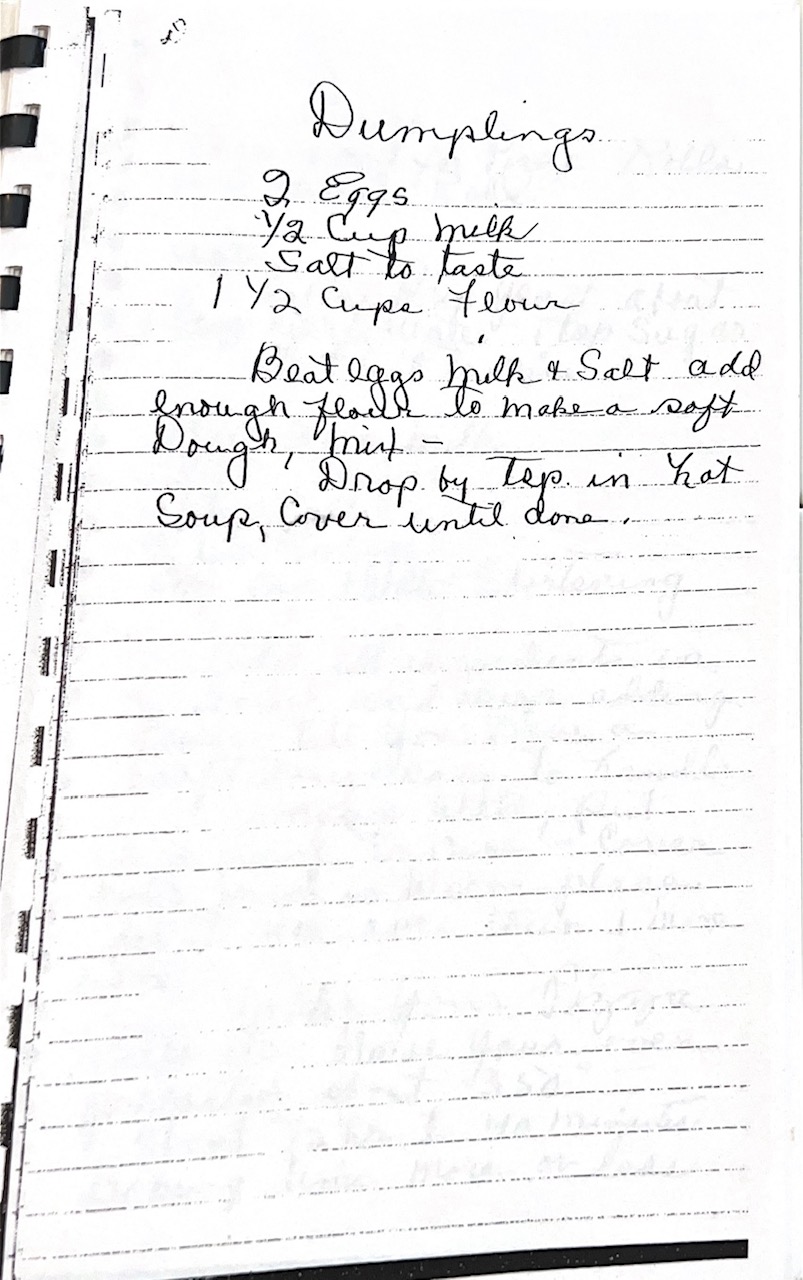 Dumplings
2 Eggs
1/2 Cup Milk
Salt to taste
1 1/2 Cups flour
Beat eggs Milk & Salt add
enough flour to make a soft
Dough, Mix -
Drop by Tsp. in hot
Soup, Cover until done.